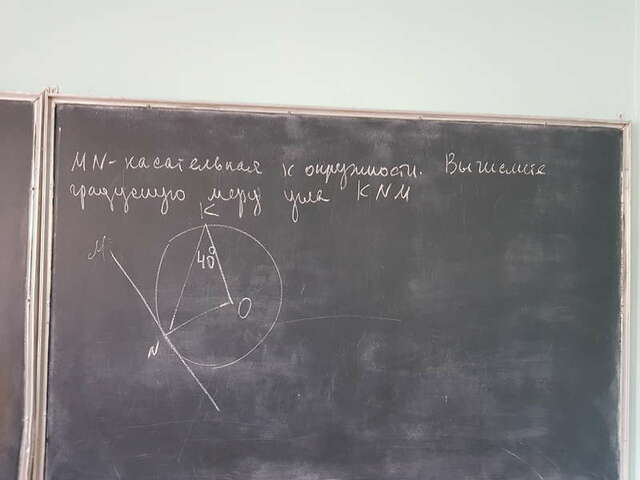 MN - касательная к окружности. Вычислите
градусную меру угла KNM
K
M
40°
O
N